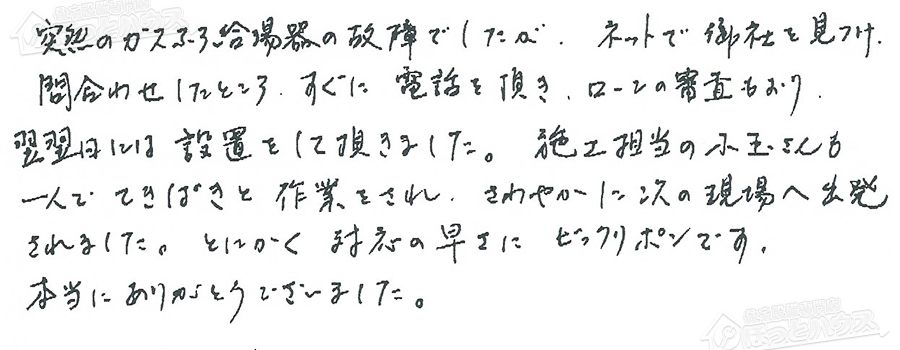 突然のガスふろ給湯器の故障でしたが、ネットで御社を見つけ、
問合わせしたところ、すぐに電話を頂き、ローンの審査もおり、
翌翌日には設置をして頂きました。施工担当の小玉さんも
一人でてきぱきと作業をされ、さわやかに次の現場へ出発
されました。とにかく対応の早さにビックリポンです。
本当にありがとうございました。
ほっとハウス